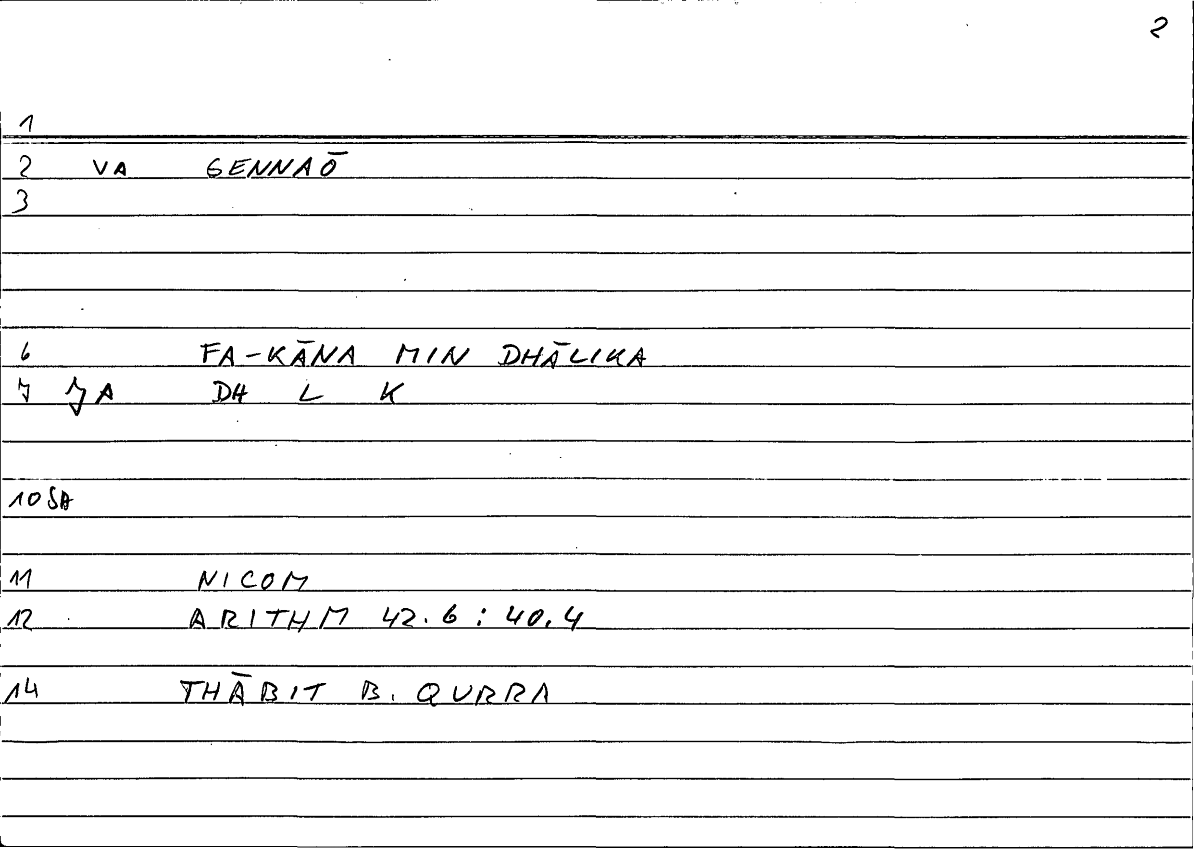 2
1
2 VA GENNAŌ
3
6 FA-KĀNA MIN DHĀLIKA
7 7A DH L K
10 SA
11 NICOM
12 ARITHM 42.6 : 40.4
14 THĀBIT B. QURRA